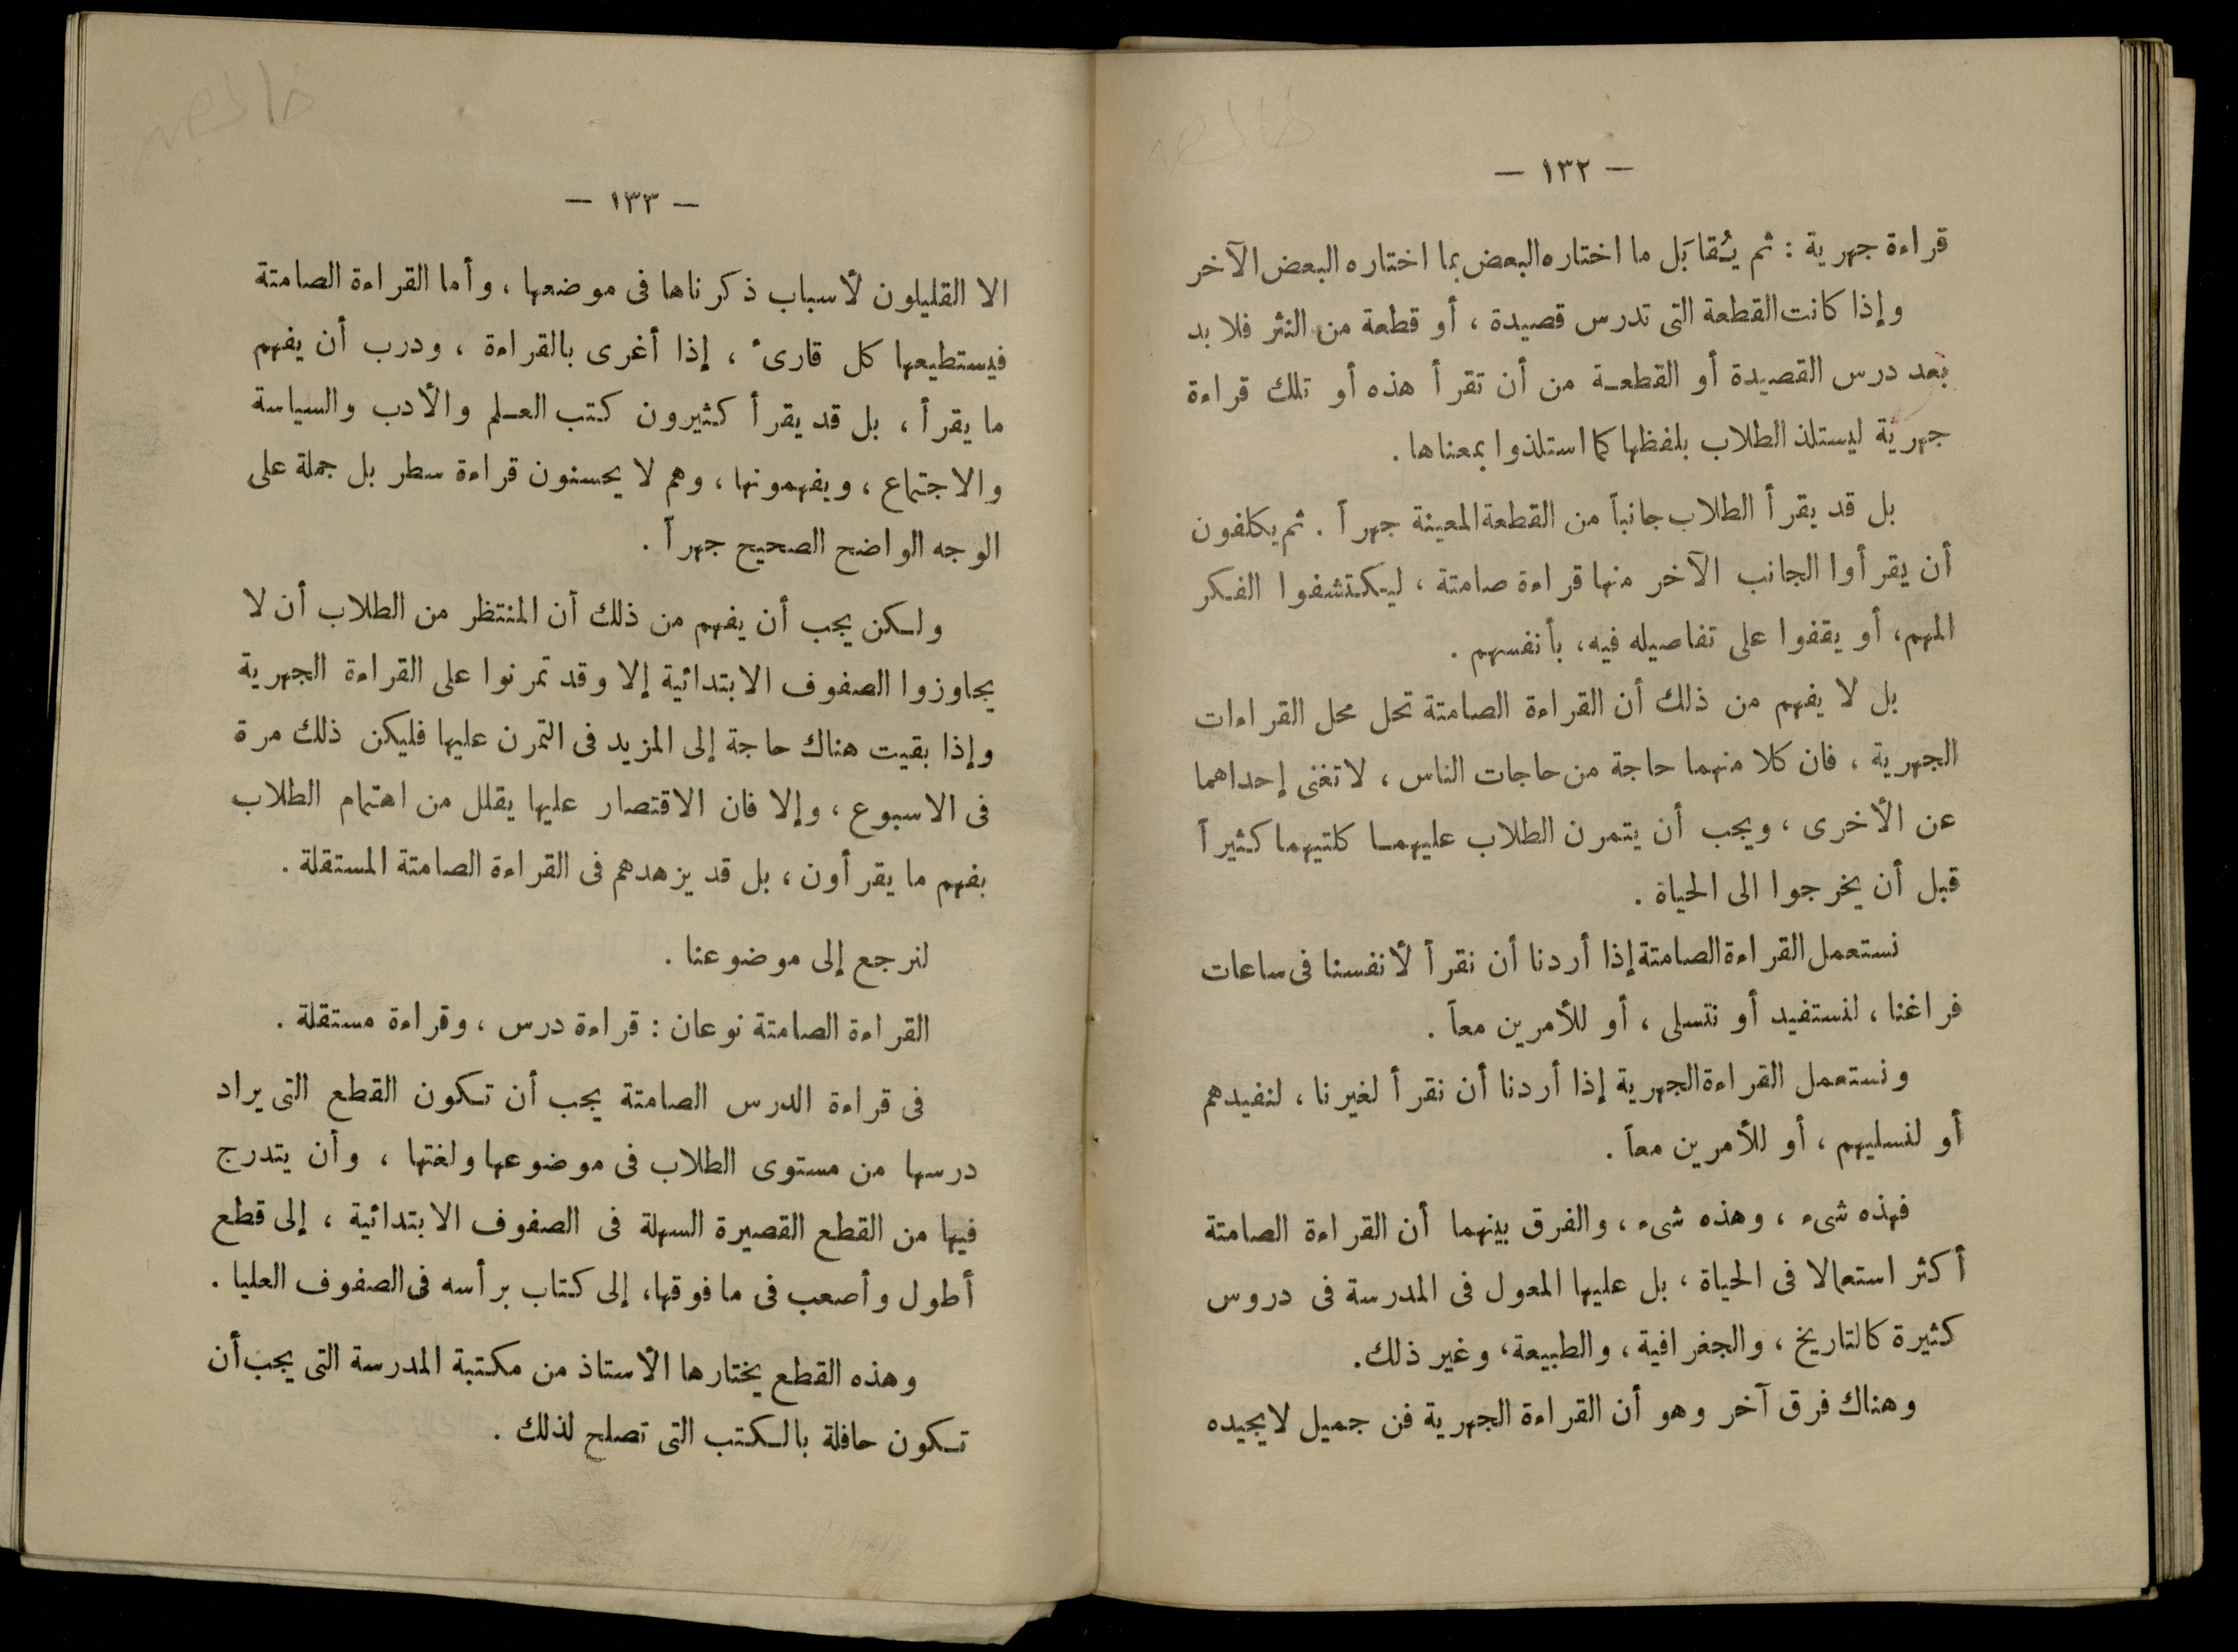 — ١٣٢ —
قراءة جهرية : ثم يُقابَل ما اختاره البعض بما اختاره البعض الآخر
وإذا كانت القطعة التى تدرس قصيدة ، أو قطعة من النثر فلا بد
بعد درس القصيدة أو القطعة من أن تقرأ هذه أو تلك قراءة
جهرية ليستلذ الطلاب بلفظها كما استلذوا بمعناها .
بل قد يقرأ الطلاب جانباً من القطعة المعينة جهراً . ثم يكلفون
أن يقرأوا الجانب الآخر منها قراءة صامتة ، ليكتشفوا الفكر
المهم، أو يقفوا على تفاصيله فيه، بأنفسهم .
بل لا يفهم من ذلك أن القراءة الصامتة تحل محل القراءات
الجهرية ، فان كلا منهما حاجة من حاجات الناس ، لا تغنى إحداهما
عن الأخرى ، ويجب أن يتمرن الطلاب عليهما كلتيهما كثيراً
قبل أن يخرجوا الى الحياة .
نستعمل القراءة الصامتة إذا أردنا أن نقرأ لأنفسنا فى ساعات
فراغنا ، لنستفيد أو نتسلى ، أو للأمرين معاً .
ونستعمل القراءة الجهرية إذا أردنا أن نقرأ لغيرنا ، لنفيدهم
أو لنسليهم ، أو للأمرين معاً .
فهذه شىء ، وهذه شىء ، والفرق بينهما أن القراءة الصامتة
أكثر استعمالا فى الحياة ، بل عليها المعول فى المدرسة فى دروس
كثيرة كالتاريخ ، والجغرافية ، والطبيعة ، وغير ذلك.
وهناك فرق آخر وهو أن القراءة الجهرية فن جميل لا يجيده
— ١٣٣ —
الا القليلون لأسباب ذكرناها فى موضعها ، وأما القراءة الصامتة
فيستطيعها كل قارىء ، إذا أغرى بالقراءة ، ودرب أن يفهم
ما يقرأ ، بل قد يقرأ كثيرون كتب العلم والأدب والسياسة
والاجتماع ، ويفهمونها ، وهم لا يحسنون قراءة سطر بل جملة على
الوجه الواضح الصحيح جهراً .
ولكن يجب أن يفهم من ذلك أن المنتظر من الطلاب أن لا
يجاوزوا الصفوف الابتدائية إلا وقد تمرنوا على القراءة الجهرية
وإذا بقيت هناك حاجة إلى المزيد فى التمرن عليها فليكن ذلك مرة
فى الاسبوع ، وإلا فان الاقتصار عليها يقلل من اهتمام الطلاب
بفهم ما يقرأون ، بل قد يزهدهم فى القراءة الصامتة المستقلة .
لنرجع إلى موضوعنا .
القراءة الصامتة نوعان : قراءة درس ، وقراءة مستقلة .
فى قراءة الدرس الصامتة يجب أن تكون القطع التى يراد
درسها من مستوى الطلاب فى موضوعها ولغتها ، وأن يتدرج
فيها من القطع القصيرة السهلة فى الصفوف الابتدائية ، إلى قطع
أطول وأصعب فى ما فوقها، إلى كتاب برأسه فى الصفوف العليا .
وهذه القطع يختارها الأستاذ من مكتبة المدرسة التى يجب أن
تكون حافلة بالكتب التى تصلح لذلك .